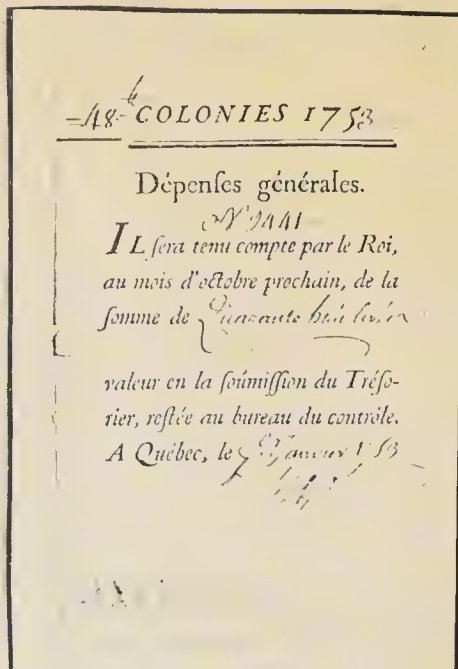 =48.-# COLONIES 1753
Dépenſes générales.
N° 9441
IL ſera tenu compte par le Roi,
au mois d'octobre prochain, de la
ſomme de Quarante huit livres
valeur en la ſoûmiſſion du Tréſo-
rier, reſtée au bureau du contrôle.
A Québec, le Janvier 1753